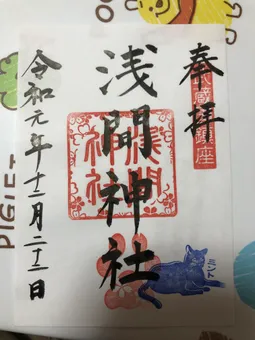 奉拝
武蔵國鎮座
浅間神社
浅間神社
令和元年十二月二十二日
ミント
PIGLET